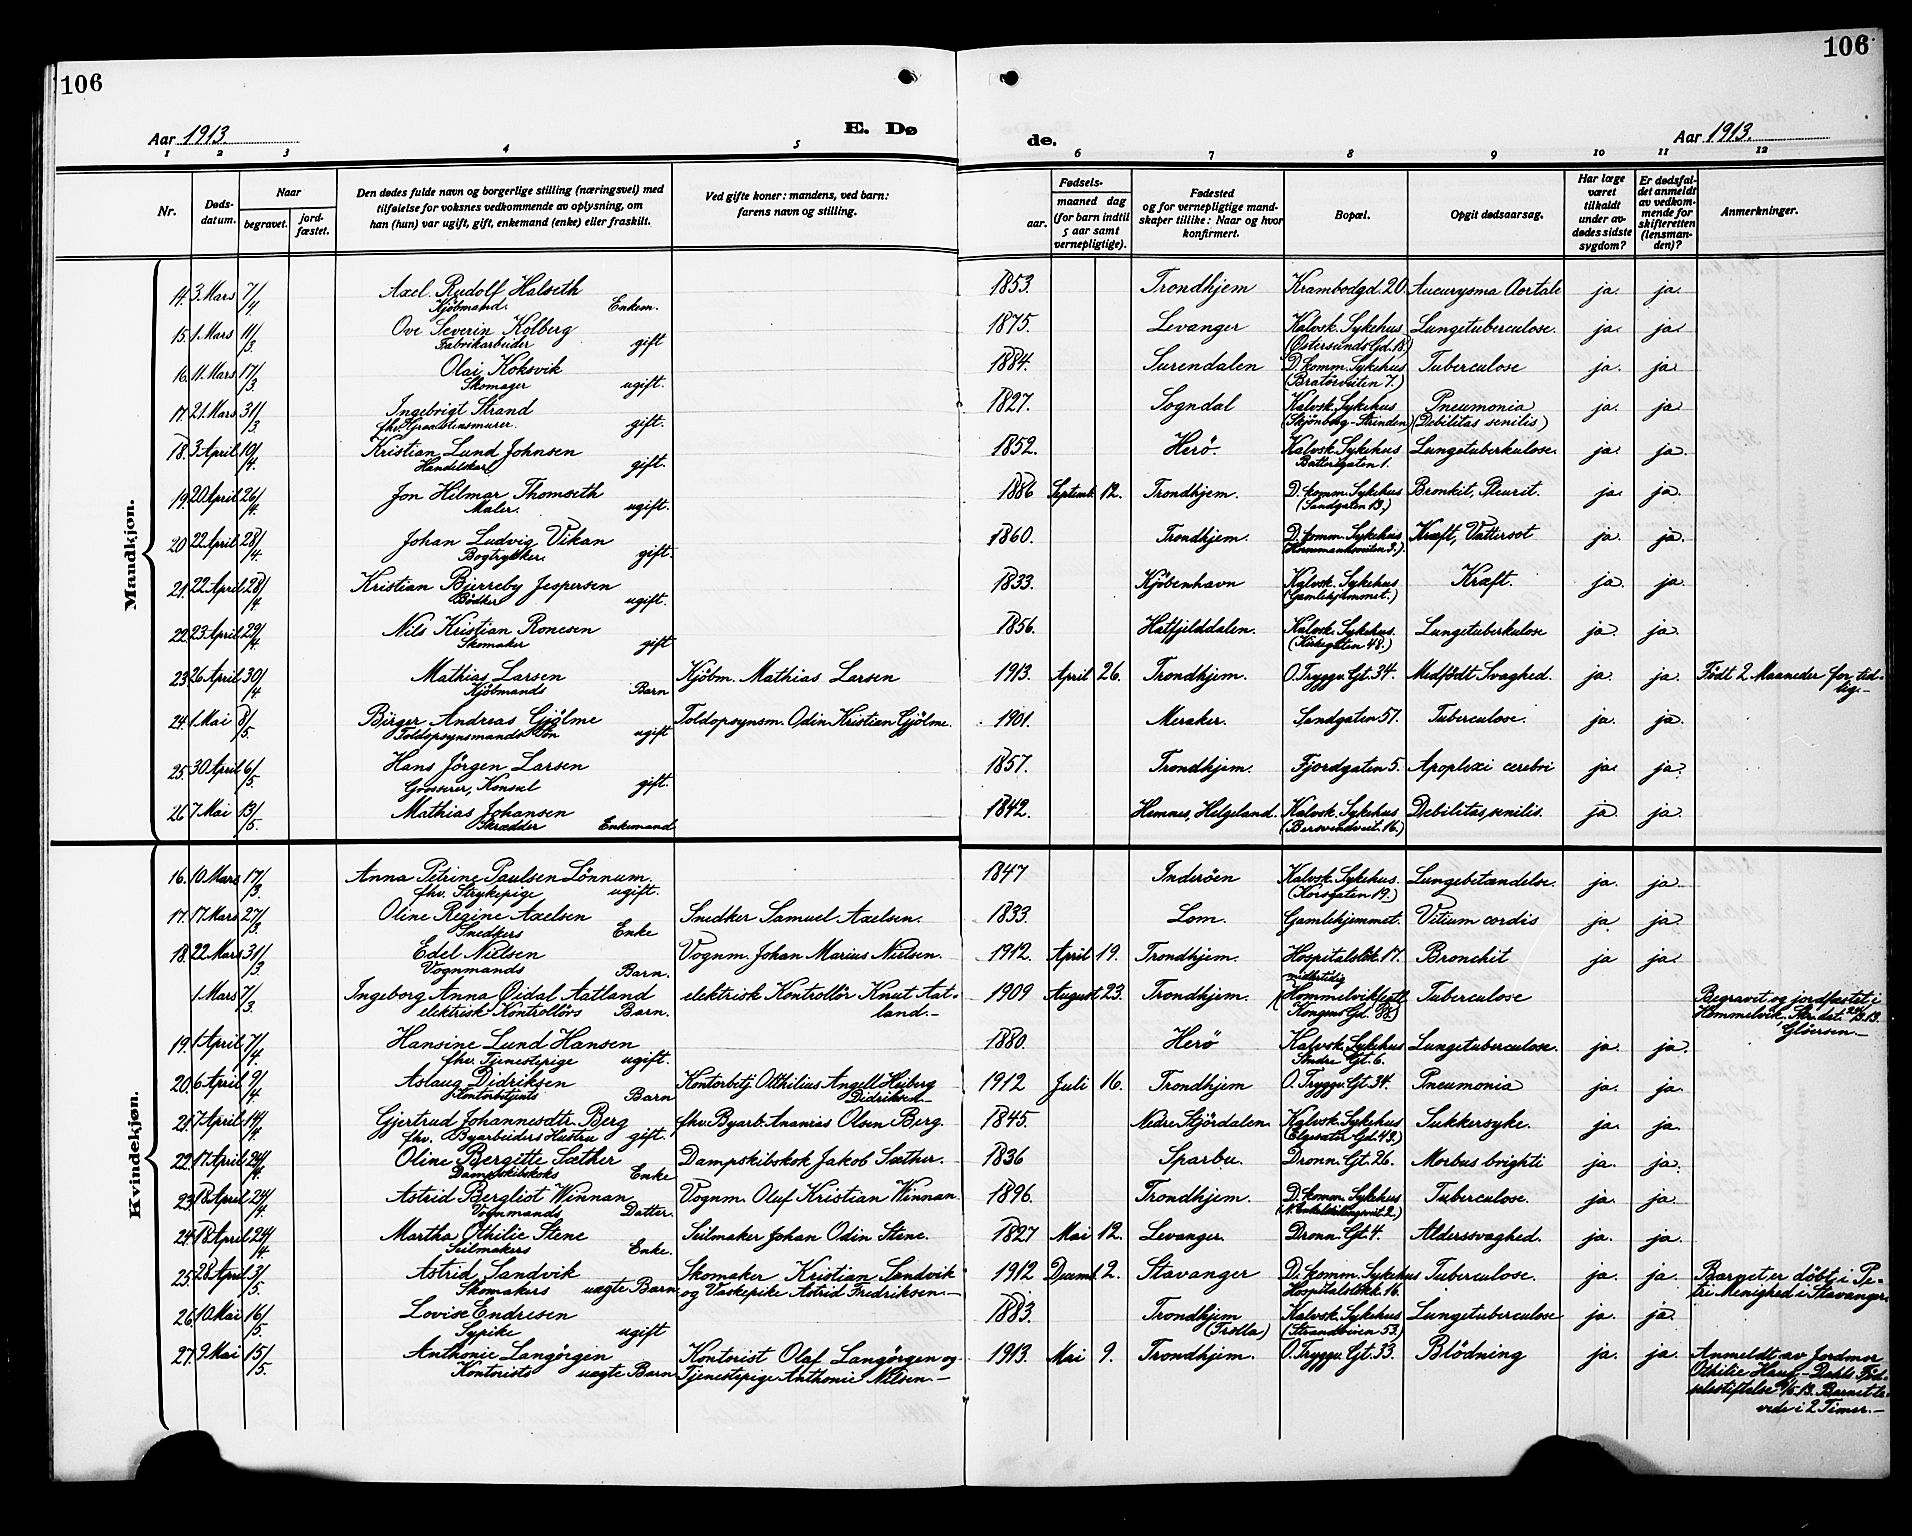 106
106
Aar 1913.
E. Dø
de.
Aar 1913.
1 2 3 4 5 6 7 8 9 10 11 12
Nr.
Døds-
datum.
Naar
begravet.
jord-
fæstet.
Den dødes fulde navn og borgerlige stilling (næringsvei) med
tilføielse for voksnes vedkommende av oplysning, om
han (hun) var ugift, gift, enkemand (enke) eller fraskilt.
Ved gifte koner: mandens, ved barn:
farens navn og stilling.
Fødsels-
aar.
maaned dag
(for barn indtil
5 aar samt
vernepligtige).
Fødested
og for vernepligtige mand-
skaper tillike: Naar og hvor
konfirmert.
Bopæl.
Opgit dødsaarsag.
Har læge
været
tilkaldt
under av-
dødes sidste
sygdom?
Er dødsfal-
det anmeldt
av vedkom-
mende for
skifteretten
(lensman-
den)?
Anmerkninger.
Mandkjøn.
14. 3. Mars 7/4 Axel Rudolf Halseth 1853. Trondhjem Krambodgd. 20. Aneurysma Aortale ja. ja.
Kjöbmand. Enkem.
15. 1. Mars 11/3 Ove Severin Kolberg 1875. Levanger Kalvsk. Sykehus Lungetuberculose. ja. ja.
Fabrikarbeider gift (Östersunds Gd. 18.)
16. 11. Mars 17/3 Olai Koksvik 1884. Surendalen D. komm. Sykehus Tuberculose ja. ja.
Skomager ugift. (Bratörveiten 7.)
17. 21. Mars 31/3 Ingebrigt Strand 1827. Sogndal Kalvsk. Sykehus Pneumonia ja. ja.
fhv. Graastensmurer. gift. (Skjönberg - Strinden) (Debilitas senilis)
18. 3. April 10/4. Kristian Lund Johnsen 1852. Herö. Kalvsk. Sykehus Lungetuberkulose. ja. ja.
Handelskar gift. Batterigaten 1.
19. 20 April 26/4. Jon Hilmar Thomseth 1886 Septemb. 12. Trondhjem. D. komm. Sykehus Bronkit, Pleurit. ja. ja.
Maler. ugift. (Sandgaten 13.)
20 22 April 28/4. Johan Ludvig Vikan 1860. Trondhjem. D. komm. Sykehus Kræft, Vattersot ja. ja.
Bogtrykker. gift. (Hornemansveiten 3.)
21. 22 April 28/4 Kristian Bjerreby Jespersen 1833. Kjöbenhavn Kalvsk. Sykehus Kræft. ja. ja.
Bödker ugift. (Gamlehjemmet.)
22. 23 April 29/4. Nils Kristian Ronesen 1856. Hatfjelddalen. Kalvsk. Sykehus. Lungetuberkulose ja. ja.
Skomaker gift (Kirkegaten 48.)
23. 26 April 30/4 Mathias Larsen Kjöbm. Mathias Larsen 1913. April 26. Trondhjem. O. Tryggv. Gt. 34. Medfödt Svaghed. ja. ja. Födt 2 Maaneder for tid-
Kjöbmands Barn lig.-
24. 1. Mai 8/5. Birger Andreas Gjölme Toldopsynsm. Odin Kristian Gjölme. 1901. Meraker. Sandgaten 57. Tuberculose. ja. ja.
Toldopsynsmands Sön ugift
25. 30 April 6/5. Hans Jörgen Larsen 1857. Trondhjem. Fjordgaten 5. Apoplexi cerebri ja. ja.
Grosserer, Konsul gift.
26 7 Mai 13/5. Mathias Johansen 1842. Hemnes, Helgeland. Kalvsk. Sykehus Debilitas senilis. ja. ja.
Skrædder Enkemand (Bersvendveit. 16.)
Kvindekjøn.
16. 10. Mars 17/3. Anna Petrine Paulsen Lönnum. 1847 Inderöen Kalvsk. Sykehus. Lungebetændelse. ja. ja.
fhv. Strykepige ugift. (Korsgaten 19.)
17. 17. Mars 27/3. Oline Regine Axelsen Snedker Samuel Axelsen. 1833. Lom. Gamlehjemmet. Vitium cordis ja ja
Snedkers Enke
18. 22 Mars 31/3 Edel Nielsen Vognm. Johan Marius Nielsen. 1912. April 19. Trondhjem. Hospitalslök. 17. Bronchit ja ja.
Vognmands Barn.
1. Mars 7/3 Ingeborg Anna Öidal Aatland elektrisk Kontrollör Knut Aat- 1909 August 23. Trondhjem. midlertidig (Hommelvik fast Tuberculose Begravet og jordfæstet i
elektrisk Kontrollörs Barn. land.- Kongens Gd. 88.) Hommelvik. Skr. dat. 22/3. 13.
19. 1. April 7/4 Hansine Lund Hansen 1880. Herö Kalvsk. Sykehus Lungetuberculose. ja. ja.
fhv. Tjenestepige ugift. Söndre Gt. 6.
20. 6 April 9/4. Aslaug Didriksen Kontorbetj. Otthilius Angell Heiberg 1912 Juli 16. Trondhjem O. Tryggv. Gt. 34. Pneumonia ja. ja.
Kontorbetjents Barn Didriksen.-
21. 7 April 14/4. Gjertrud Johannesdtr. Berg fhv. Byarb. Ananias Olsen Berg. 1845. Nedre Stjördalen. Kalvsk. Sykehus Sukkersyke. ja. ja.
fhv. Byarbeiders Hustru gift. (Elgesæter Gd. 43.)
22. 17 April 24/4. Oline Bergitte Sæther Dampskibskok Jakob Sæther. 1836 Sparbu. Dronn. Gt. 26. Morbus brighti ja. ja.
Dampskibskoks Enke
23. 18. April 24/4. Astrid Bergliot Winnan Vognm. Oluf Kristian Winnan 1896. Trondhjem. D. komm. Sykehus Tuberculose. ja. ja.
Vognmands Datter.
24. 18 April 24/4 Martha Othilie Stene Seilmaker Johan Odin Stene. 1827 Mai 12. Levanger. Dronn. Gt. 4. Alderssvaghed. ja. ja.
Seilmakers Enke.
25. 28 April 3/5. Astrid Sandvik Skomaker Kristian Sandvik 1912 Decemb. 2. Stavanger D. komm. Sykehus Tuberculose. ja. ja. Barnet er döbt i Pe-
Skomakers uægte Barn og Vaskepike Astrid Fredriksen.- Hospitalslökk. 16. tri Menighed i Stavanger.
26. 10. Mai 16/5. Lovise Endresen 1883. Trondhjem Kalvsk. Sykehus Lungetuberculose ja. ja.
Sypike ugift (Trolla) (Strandveien 53.)
27. 9. Mai 15/5. Anthonie Langörgen Kontorist Olaf Langörgen og 1913. Mai 9. Trondhjem. O. Tryggv. Gt. 33. Blödning ja. ja. Anmeldt av Jordmor
Kontorists uægte Barn Tjenestepige Anthonie Nilsen.- Othilie Haug - Dahls Föd-
selsstiftelse 9/5 13. Barnet le-
vede i 2 Timer.-